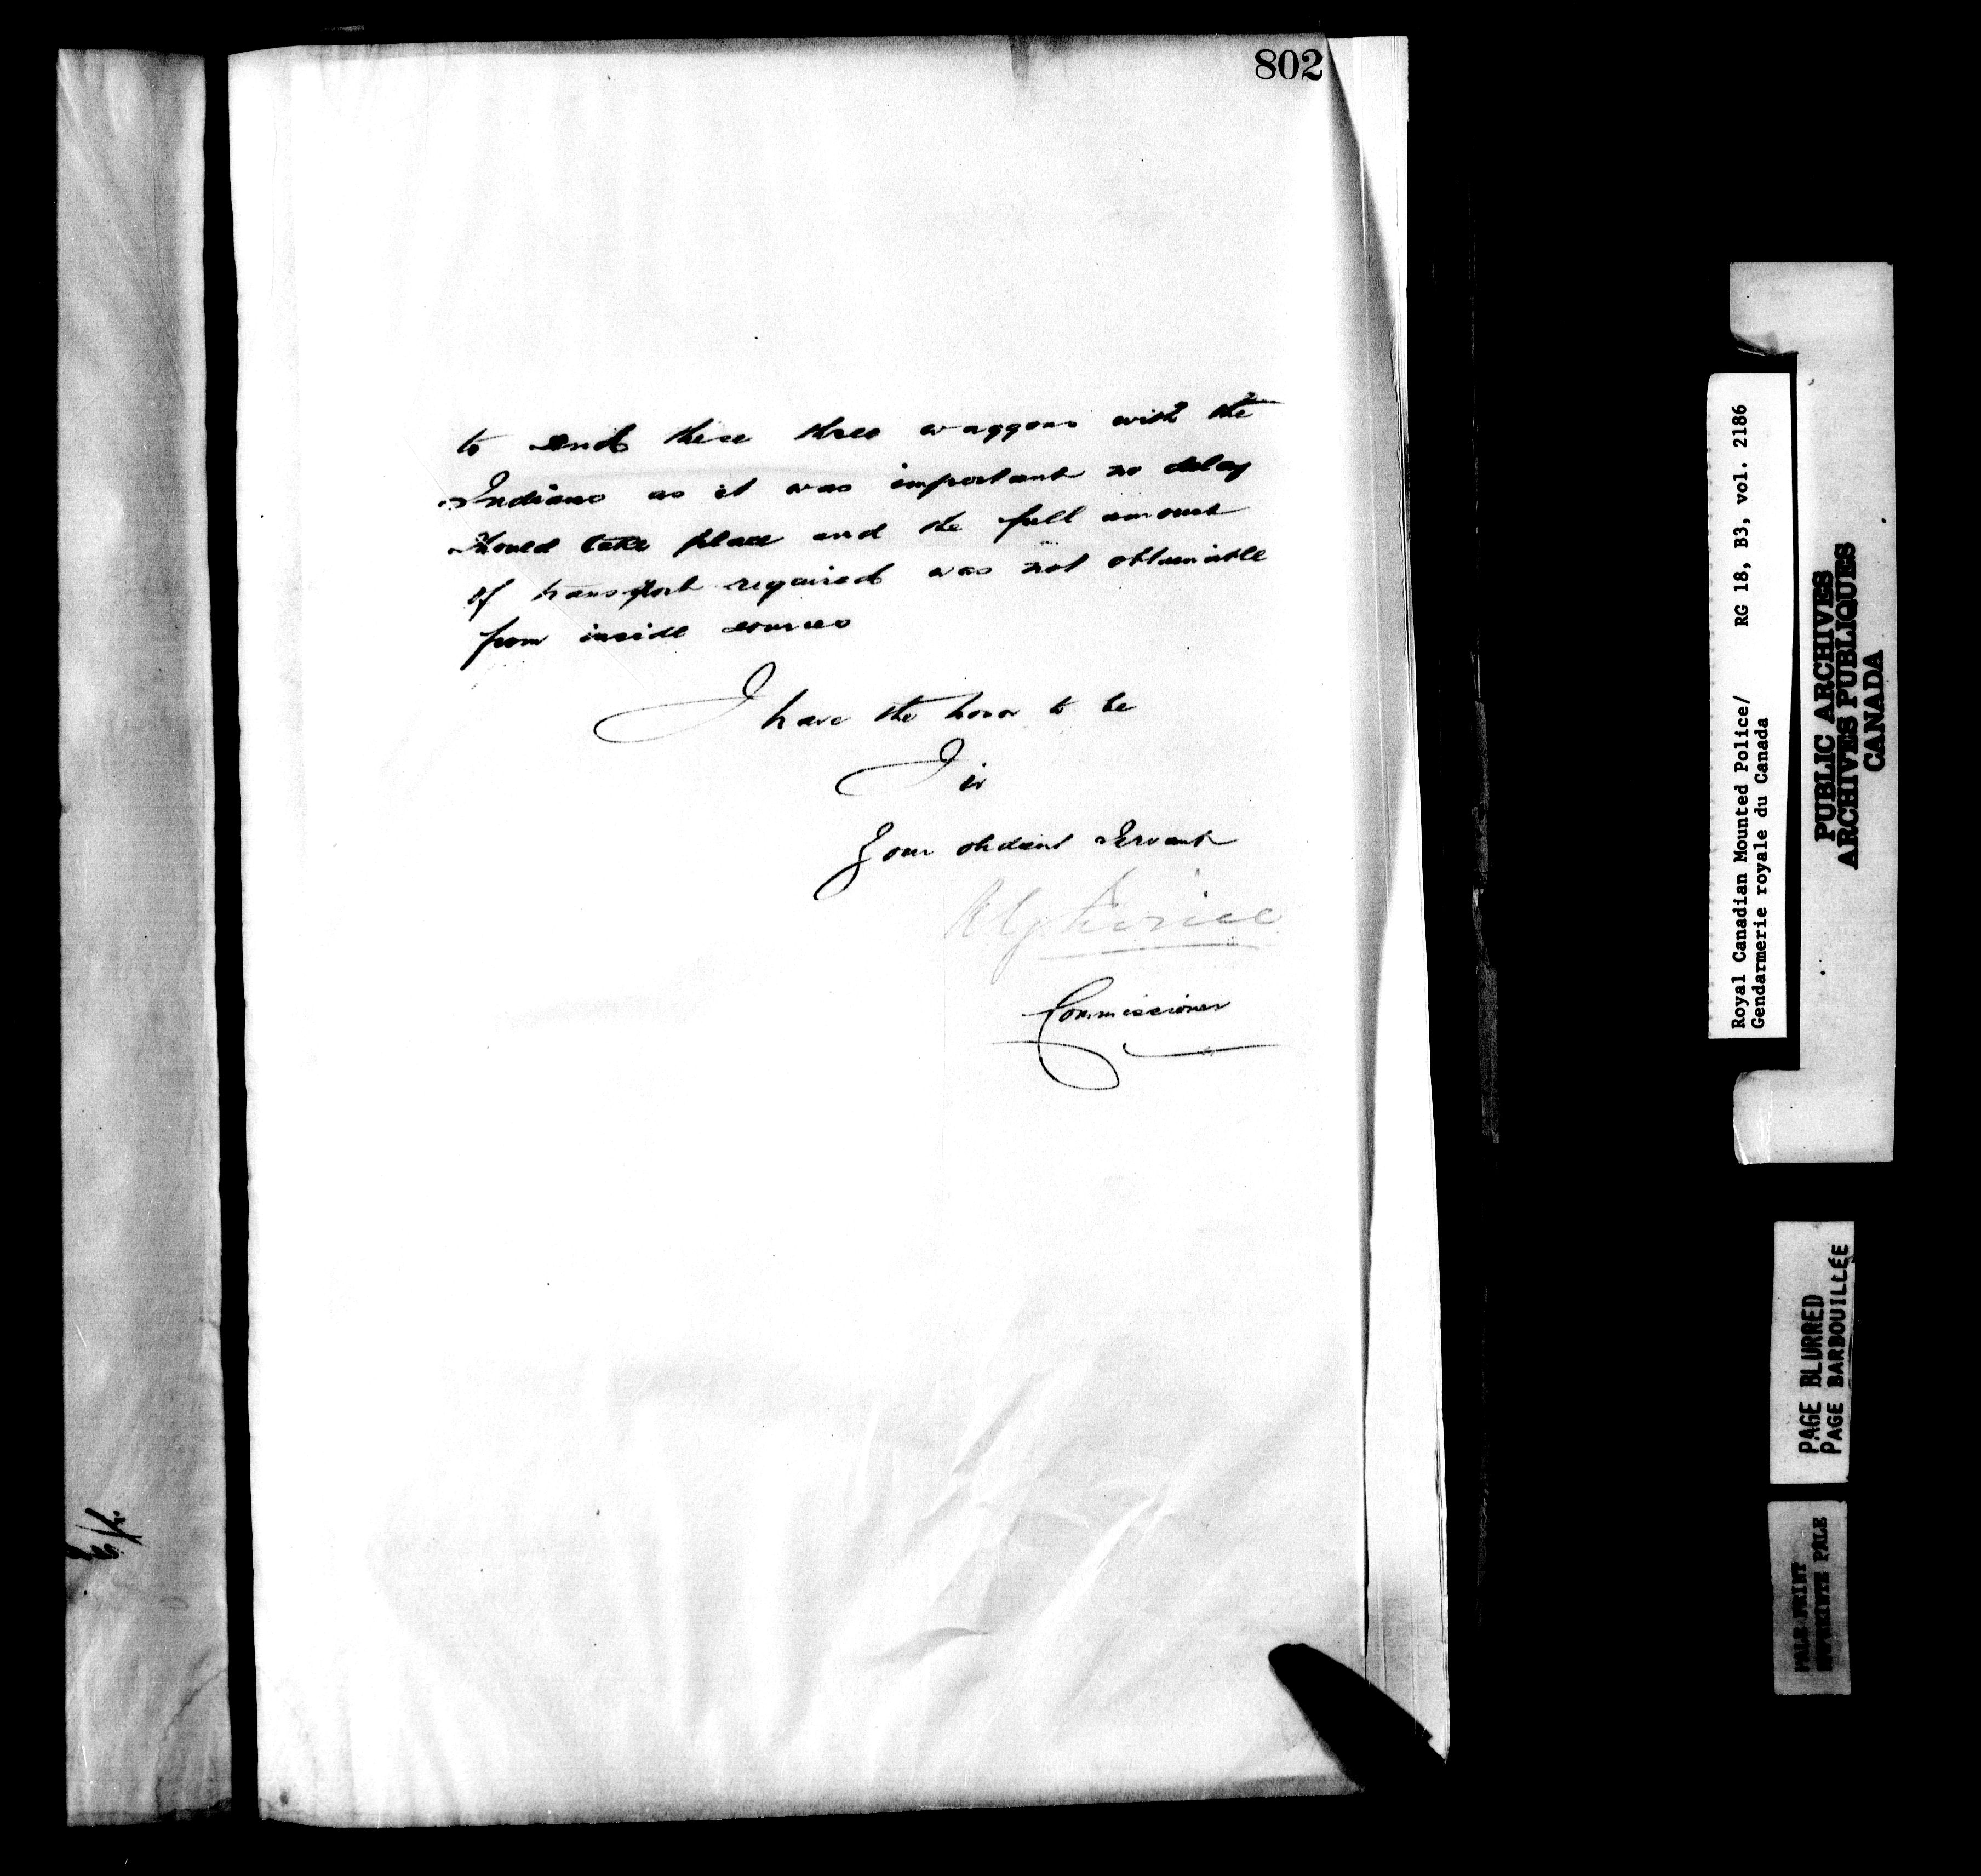 802
to send these three waggons with the
Indians as it was important no delay
should take place and the full amount
of transport required was not obtainable
from inside sources
I have the honor to be
Sir
Your obedient Servant
Commissioner
Royal Canadian Mounted Police/ RG 18, B3, vol. 2186
Gendarmerie royale du Canada
PUBLIC ARCHIVES
ARCHIVES PUBLIQUES
CANADA
PAGE BLURRED
PAGE BARBOUILLÉE
PALE PRINT
EPREUVE PALE